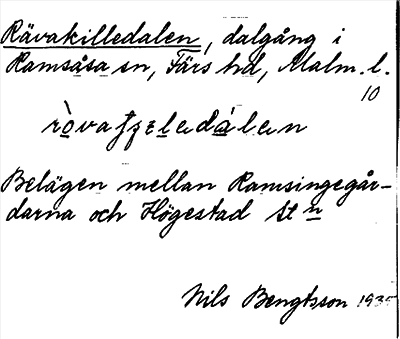 Rävakilledalen, dalgång i
Ramsåsa sn, Färs hd, Malm. l.
10
Belägen mellan Ramsingegår-
darna och Högestad stn
Nils Bengtsson 1935